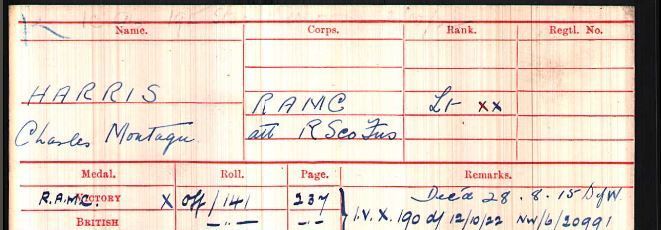 Name. Corps. Rank. Regtl. No.
HARRIS RAMC Lt xx
Charles Montagu att R Sco Fus
Medal. Roll. Page. Remarks.
R.A.M.C. VICTORY X Off/141 237 Dec'd 28.8.15 D of W
BRITISH -"- -"- I.V.X. 190 d/ 12/10/22 NW/6/20991